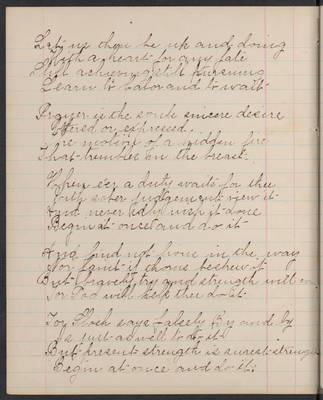 Let us then be up and doing
With a heart for any fate
Still achieving still pursuing
Learn to labor and to wait
Prayer is the souls sincere desire
Uttered or expressed.
The motion of a hidden fire
That trembles in the breast.
When eer a duty waits for thee
With sober judgement view it
And never idly wish it done
Begin at once and do it
And find not lions in the way
Nor faint if thorns bestrew it
But bravely try and strength will come
For God will help thee do it.
For Sloth says falsely By and by
Is just as well to do it
But present strength is surest strength
Begin at once and do it.